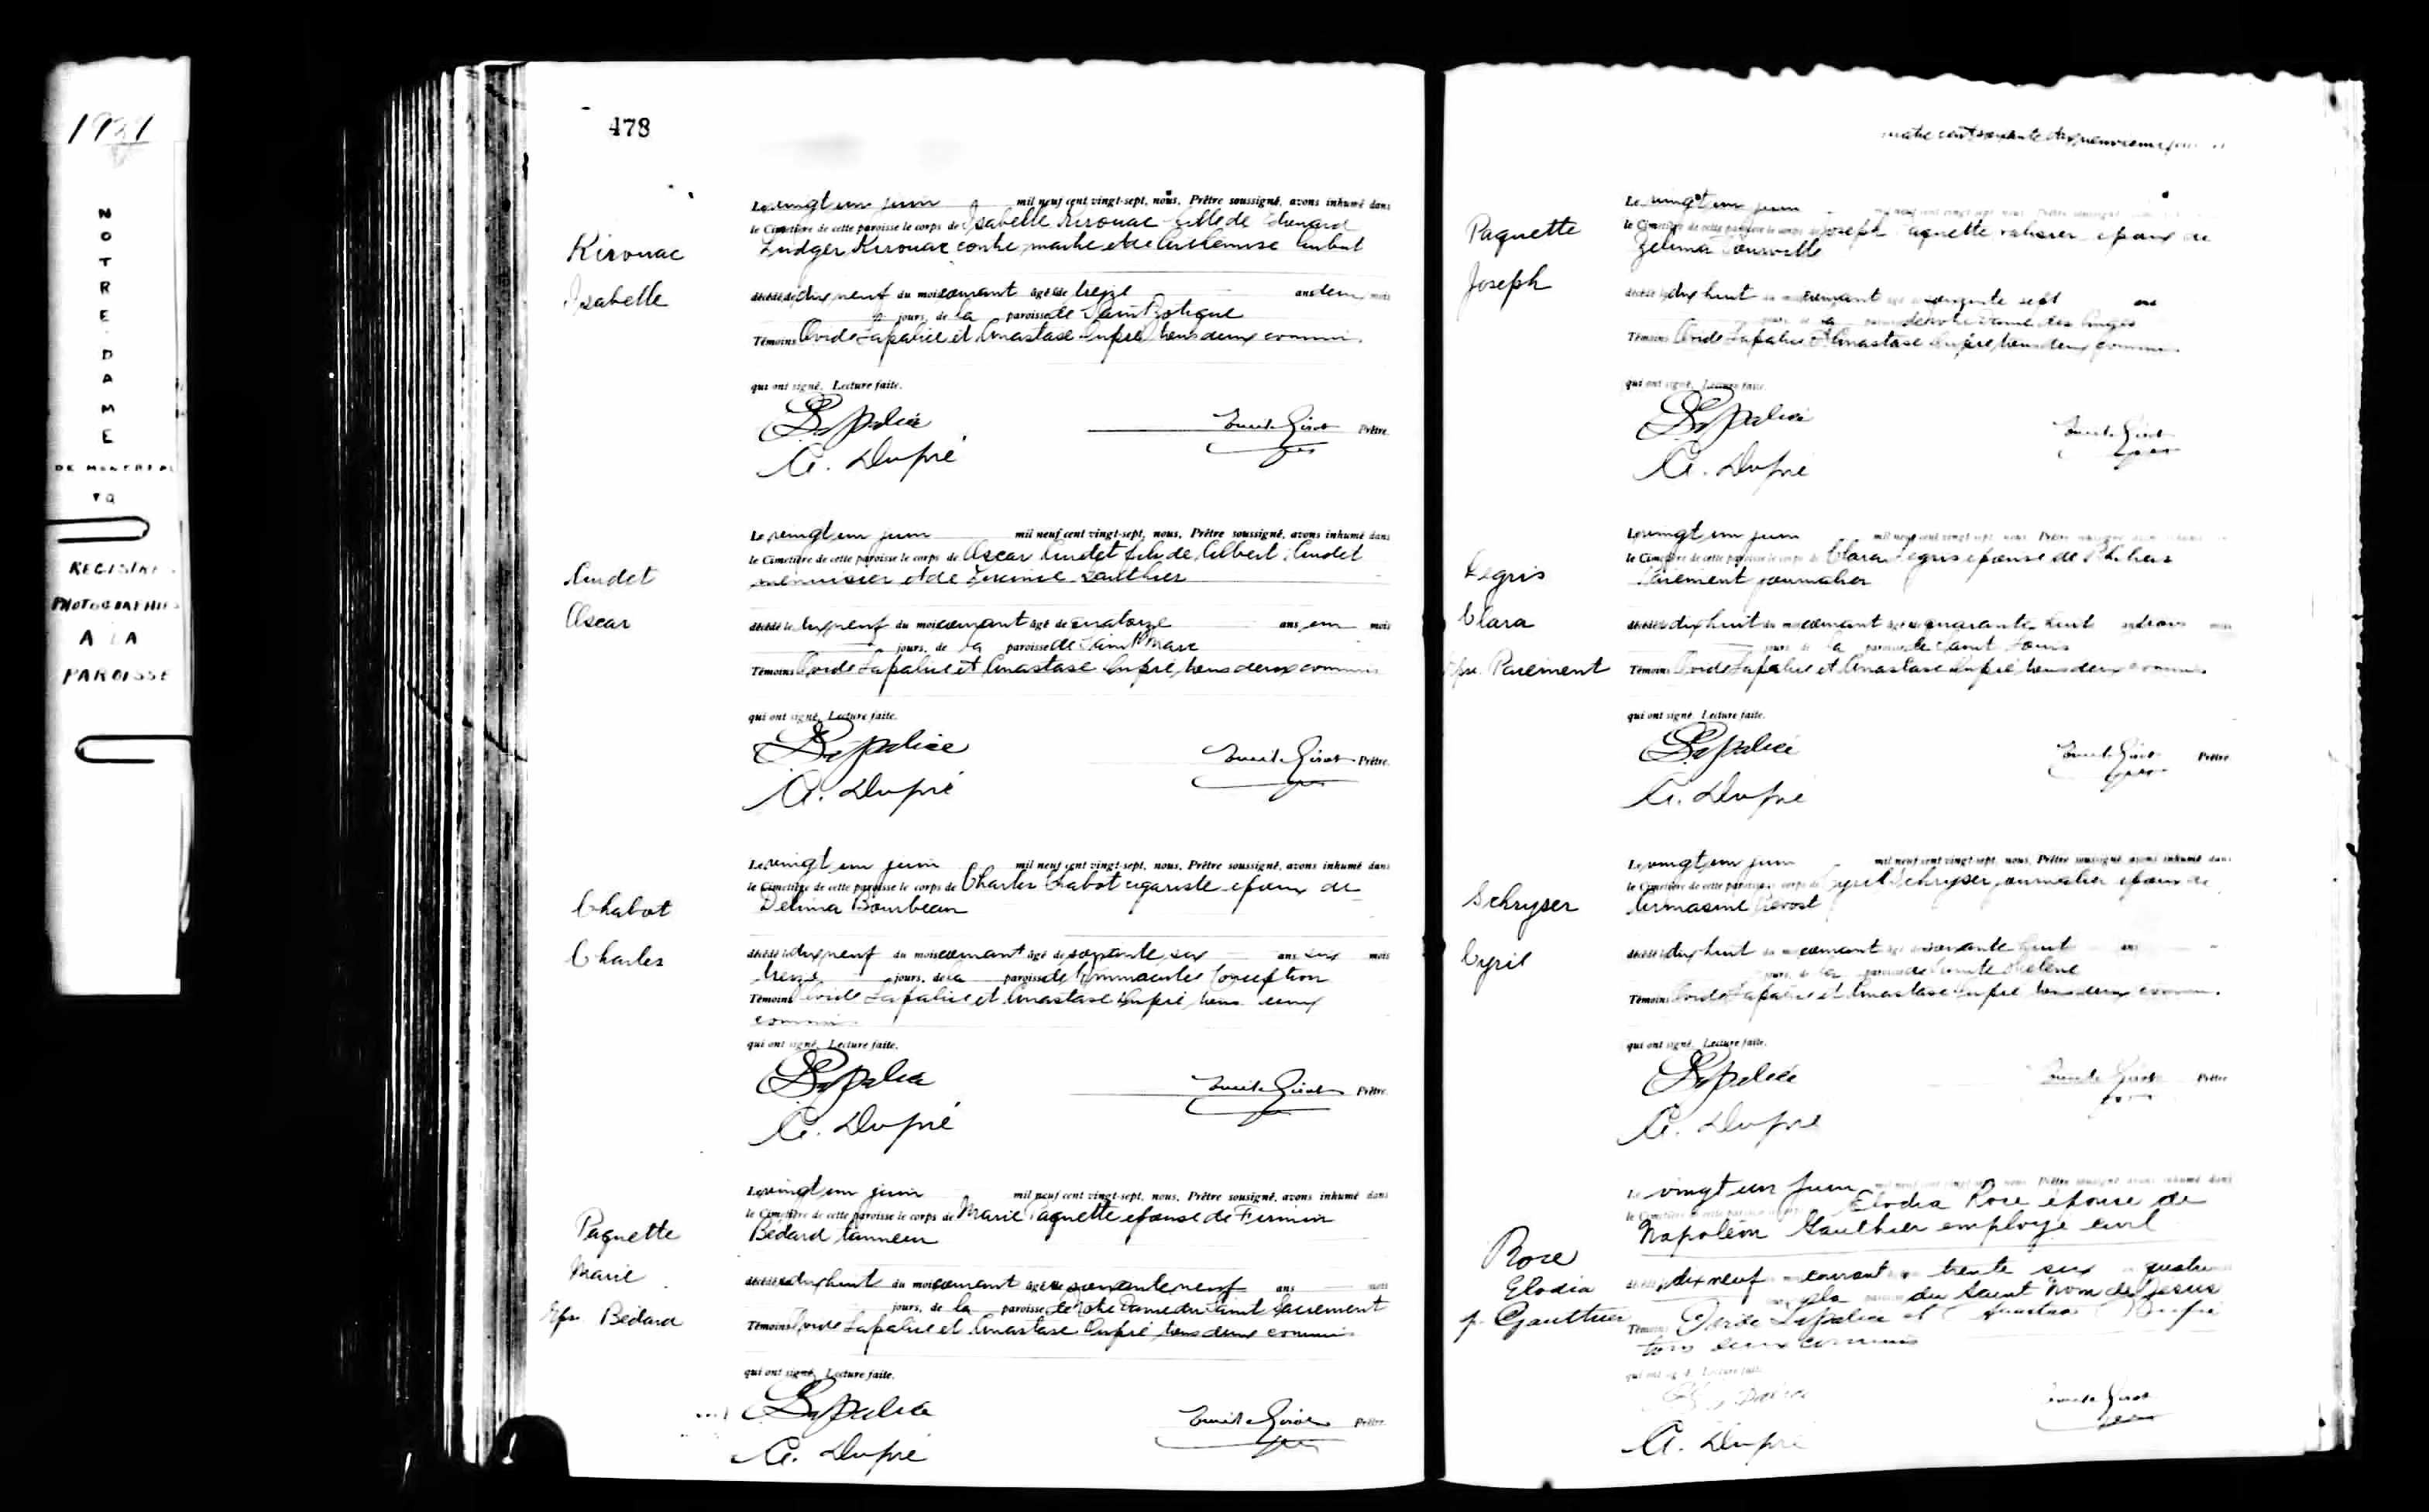 NOTRE DAME
DE MONTREAL
REGISTRE
PHOTOGRAPHIE
A LA
PAROISSE
478
Kirouac
Isabelle
Le vingt un juin mil neuf cent vingt-sept, nous, Prêtre soussigné, avons inhumé dans
le Cimetière de cette paroisse le corps de Isabelle Kirouac fille de Edouard
Ludger Kirouac contre maitre et de
décédée dix neuf du mois courant âgé de treize ans deux mois
jours, de la paroisse de Saint Zotique
Témoins Ovide Lapalice et Anastase Dupré, tous deux commis
qui ont signé. Lecture faite.
Lapalice
Prêtre.
A. Dupré
Audet
Oscar
Le vingt un juin mil neuf cent vingt-sept, nous, Prêtre soussigné, avons inhumé dans
le Cimetière de cette paroisse le corps de Oscar Audet fils de Albert Audet
menuisier et de Gauthier
décédé le dix neuf du mois courant âgé de quatorze ans un mois
jours, de la paroisse de Saint Marc
Témoins Ovide Lapalice et Anastase Dupré, tous deux commis
qui ont signé. Lecture faite.
Lapalice
Prêtre.
A. Dupré
Chabot
Charles
Le vingt un juin mil neuf cent vingt-sept, nous, Prêtre soussigné, avons inhumé dans
le Cimetière de cette paroisse le corps de Charles Chabot cigariste epoux de
Delima Bourbeau
décédé le dix neuf du mois courant âgé de soixante six ans six mois
treize jours, de la paroisse de l'Immaculée Conception
Témoins Ovide Lapalice et Anastase Dupré, tous deux
commis
qui ont signé. Lecture faite.
Lapalice
Prêtre.
A. Dupré
Paquette
Marie
Eps. Bédard
Le vingt un juin mil neuf cent vingt-sept, nous, Prêtre sousigné, avons inhumé dans
le Cimetière de cette paroisse le corps de Marie Paquette epouse de Firmin
Bédard tanneur
décédée dix huit du mois courant âgé de soixante neuf ans mois
jours, de la paroisse de Notre Dame du Saint Sacrement
Témoins Ovide Lapalice et Anastase Dupré, tous deux commis
qui ont signé. Lecture faite.
Lapalice
Prêtre.
A. Dupré
Paquette
Joseph
Le vingt un juin
le Cimetière de cette paroisse le corps de Joseph Paquette epoux de
Zelima Tourville
décédé dix huit du mois courant âgé de cinquante sept ans
jours, de la paroisse de Notre Dame des Anges
Témoins Ovide Lapalice et Anastase Dupré, tous deux commis
qui ont signé. Lecture faite.
Lapalice
A. Dupré
Legris
Clara
Eps. Parement
Le vingt un juin mil neuf cent vingt-sept, nous, Prêtre
le Cimetière de cette paroisse le corps de Clara Legris epouse de
Parement journalier
décédée dix huit du mois courant âgé de quarante huit ans trois mois
jours, de la paroisse de Saint Louis
Témoins Ovide Lapalice et Anastase Dupré, tous deux commis
qui ont signé. Lecture faite.
Lapalice
Prêtre
A. Dupré
Schryser
Cyril
Le vingt un juin mil neuf cent vingt-sept, nous, Prêtre soussigné, avons inhumé dans
le Cimetière de cette paroisse le corps de Cyril Schryser journalier epoux de
Prevost
décédé dix huit du mois courant âgé de soixante huit ans
jours, de la paroisse de Sainte Helene
Témoins Ovide Lapalice et Anastase Dupré, tous deux commis
qui ont signé. Lecture faite.
Lapalice
Prêtre
A. Dupré
Rose
Elodia
p. Gauthier
Le vingt un juin
le Cimetière Elodia Rose épouse de
Napoléon Gauthier employé civil
dix neuf courant trente six quatre
du Saint Nom de Jesus
Témoins Ovide Lapalice et Anastase Dupré
tous deux commis
qui ont signé. Lecture faite.
A. Dupré